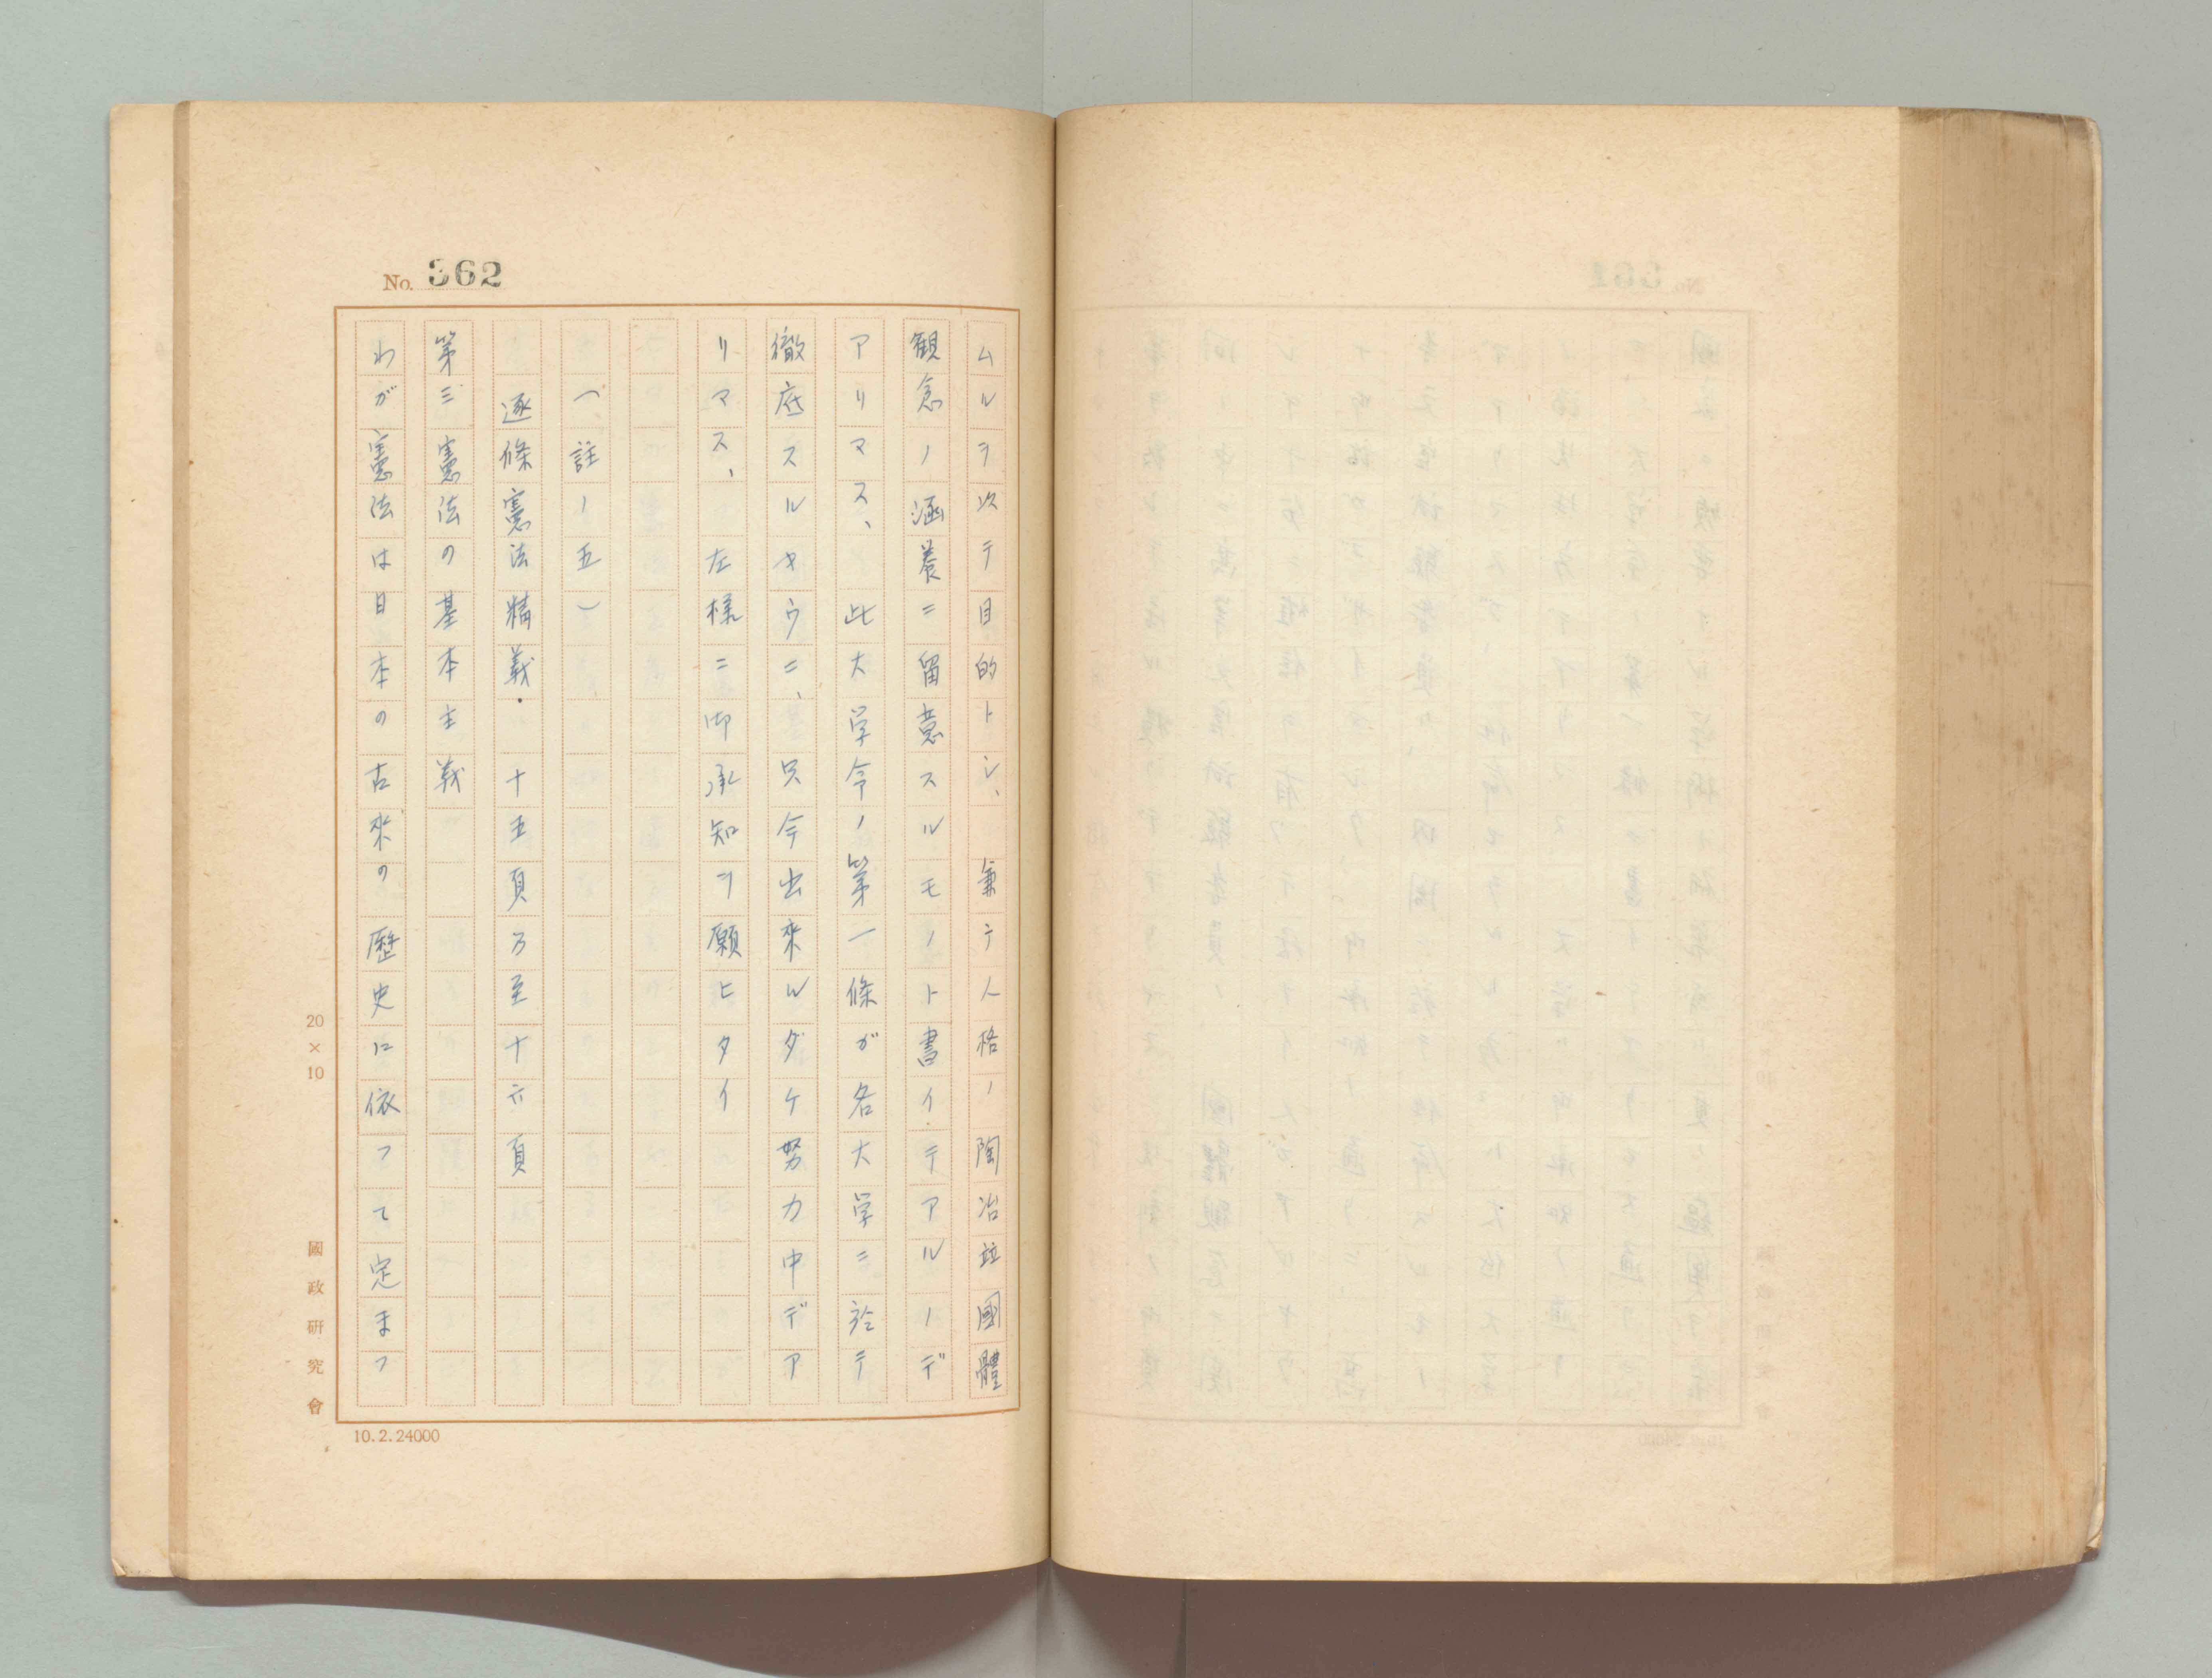 No. 362
ムルヲ以テ目的トシ、兼テ人格ノ陶冶竝國體
観念ノ涵養ニ留意スルモノト書イテアルノデ
アリマス、此大学令ノ第一條ガ各大学ニ於テ
徹底スルヤウニ、只今出來ルダケ努力中デア
リマス、左様ニ御承知ヲ願ヒタイ
(註ノ五)
逐條憲法精義・十五頁乃至十六頁
第三憲法の基本主義
わが憲法は日本の古來の歴史に依つて定まつ
20×10
國政研究會
10.2.24000